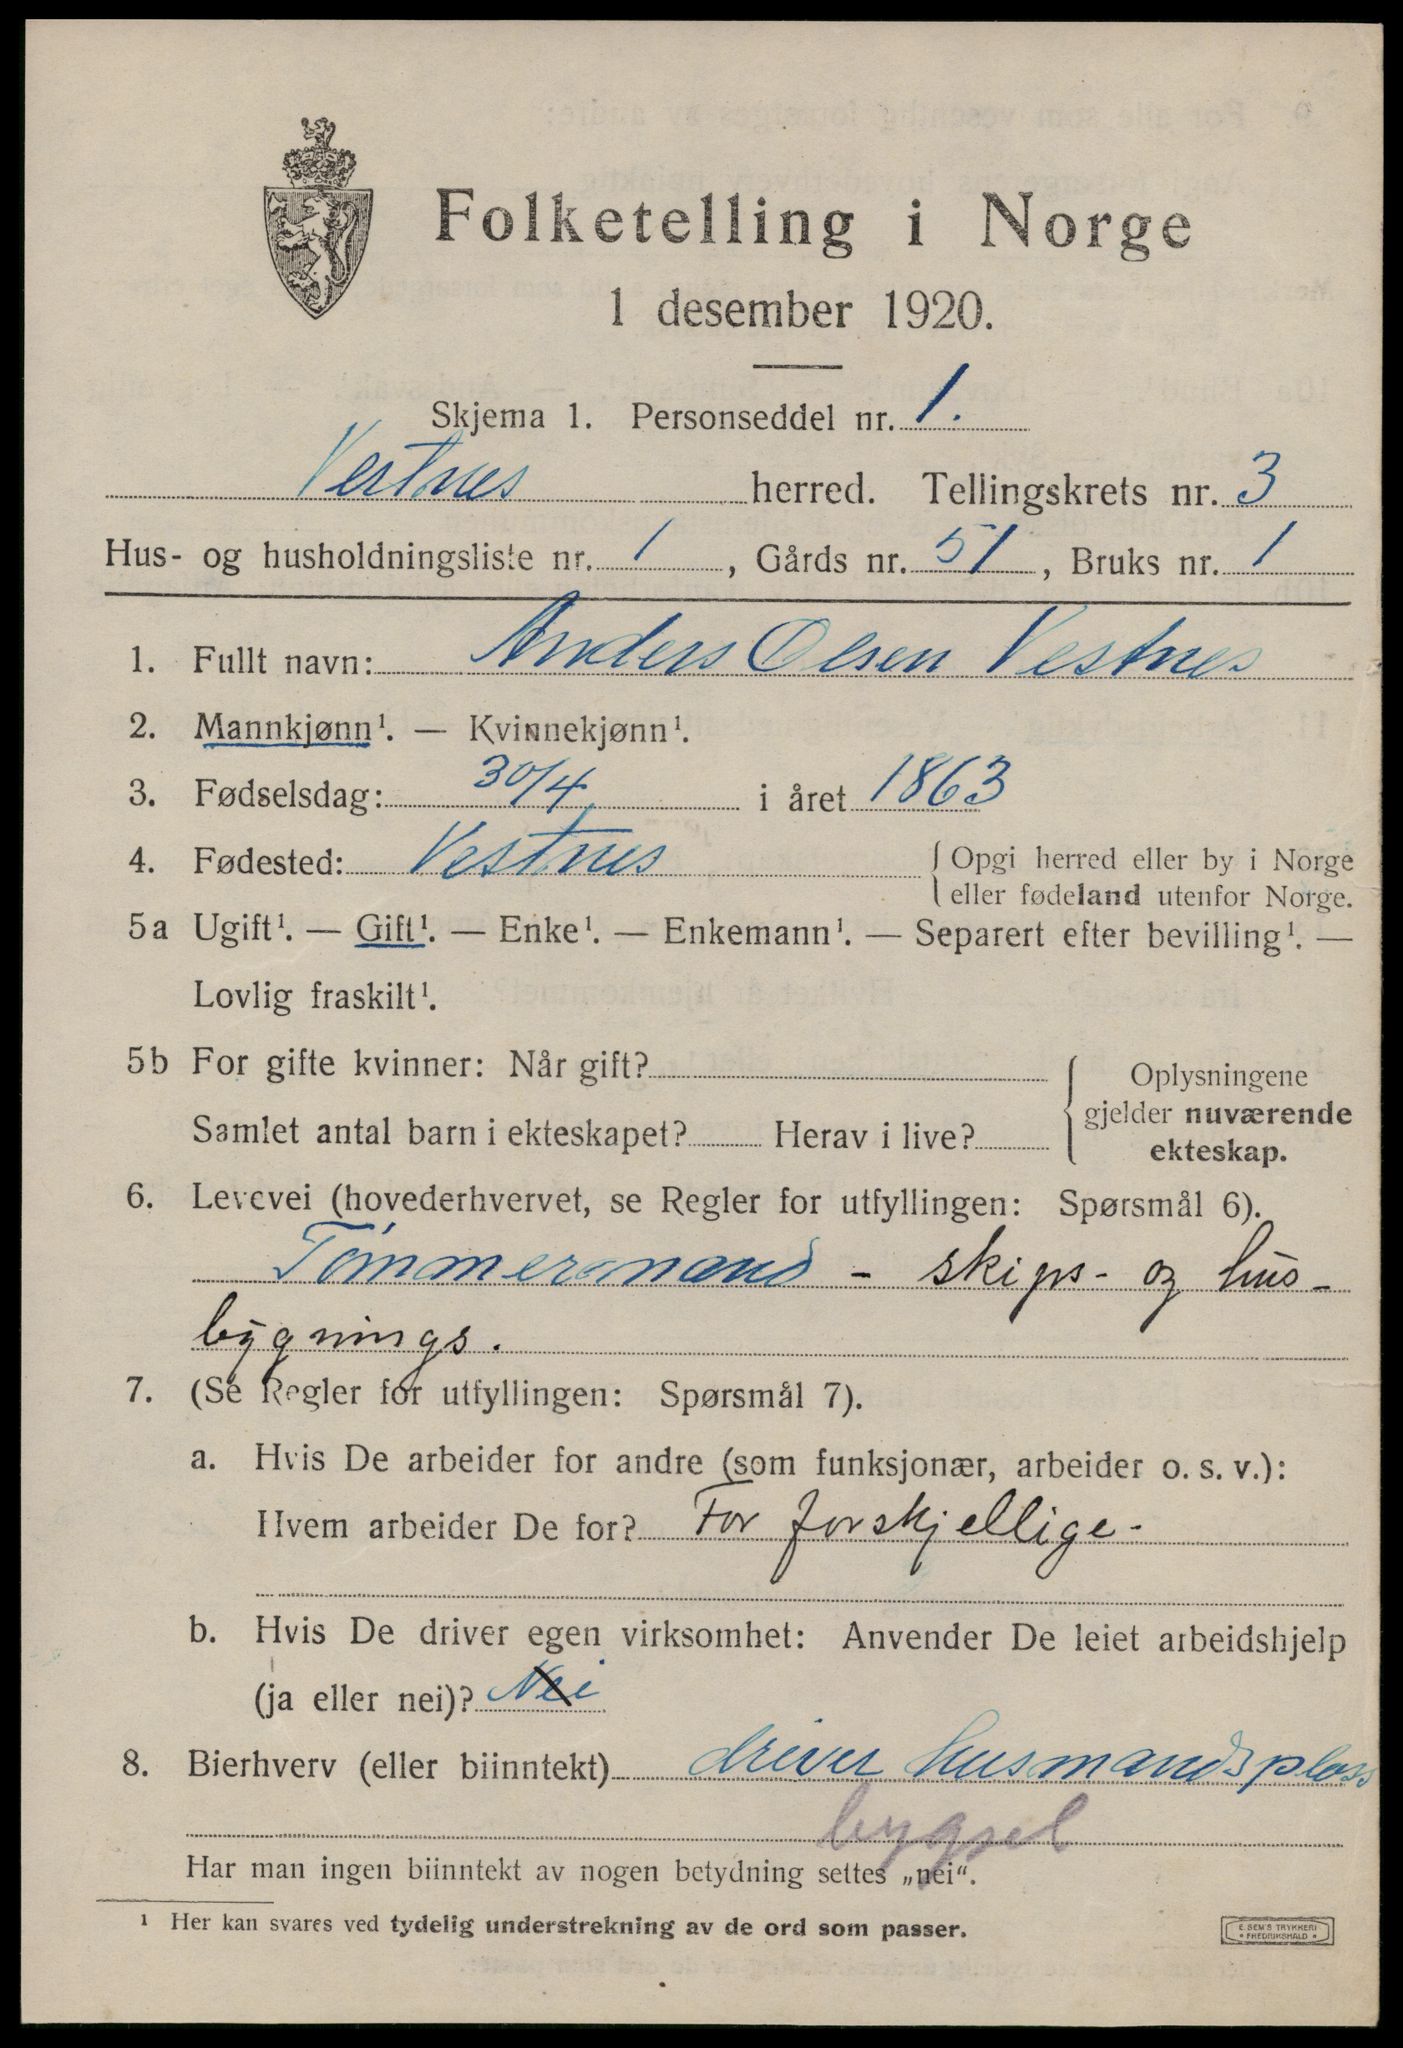 Folketelling i Norge
1 desember 1920.
Skjema 1. Personseddel nr. 1.
Vestnes herred. Tellingskrets nr. 3
Hus- og husholdningsliste nr. 1, Gårds nr. 51, Bruks nr. 1
1. Fullt navn: Anders Olsen Vestnes
2. Mannkjønn¹. — Kvinnekjønn¹.
3. Fødselsdag: 30/4 i året 1863
4. Fødested: Vestnes { Opgi herred eller by i Norge
eller fødeland utenfor Norge.
5a Ugift¹. — Gift¹. — Enke¹. — Enkemann¹. — Separert efter bevilling¹. —
Lovlig fraskilt¹.
5b For gifte kvinner: Når gift?
Samlet antal barn i ekteskapet? Herav i live?
{ Oplysningene
gjelder nuværende
ekteskap.
6. Levevei (hovederhvervet, se Regler for utfyllingen: Spørsmål 6).
Tømmermand - skips- og hus-
bygnings.
7. (Se Regler for utfyllingen: Spørsmål 7).
a. Hvis De arbeider for andre (som funksjonær, arbeider o. s. v.):
Hvem arbeider De for? For forskjellige-
b. Hvis De driver egen virksomhet: Anvender De leiet arbeidshjelp
(ja eller nei)? Nei
8. Bierhverv (eller biinntekt) driver husmandsplass
bygsel
Har man ingen biinntekt av nogen betydning settes „nei“.
¹ Her kan svares ved tydelig understrekning av de ord som passer.
E. SEM'S TRYKKERI
FREDRIKSHALD